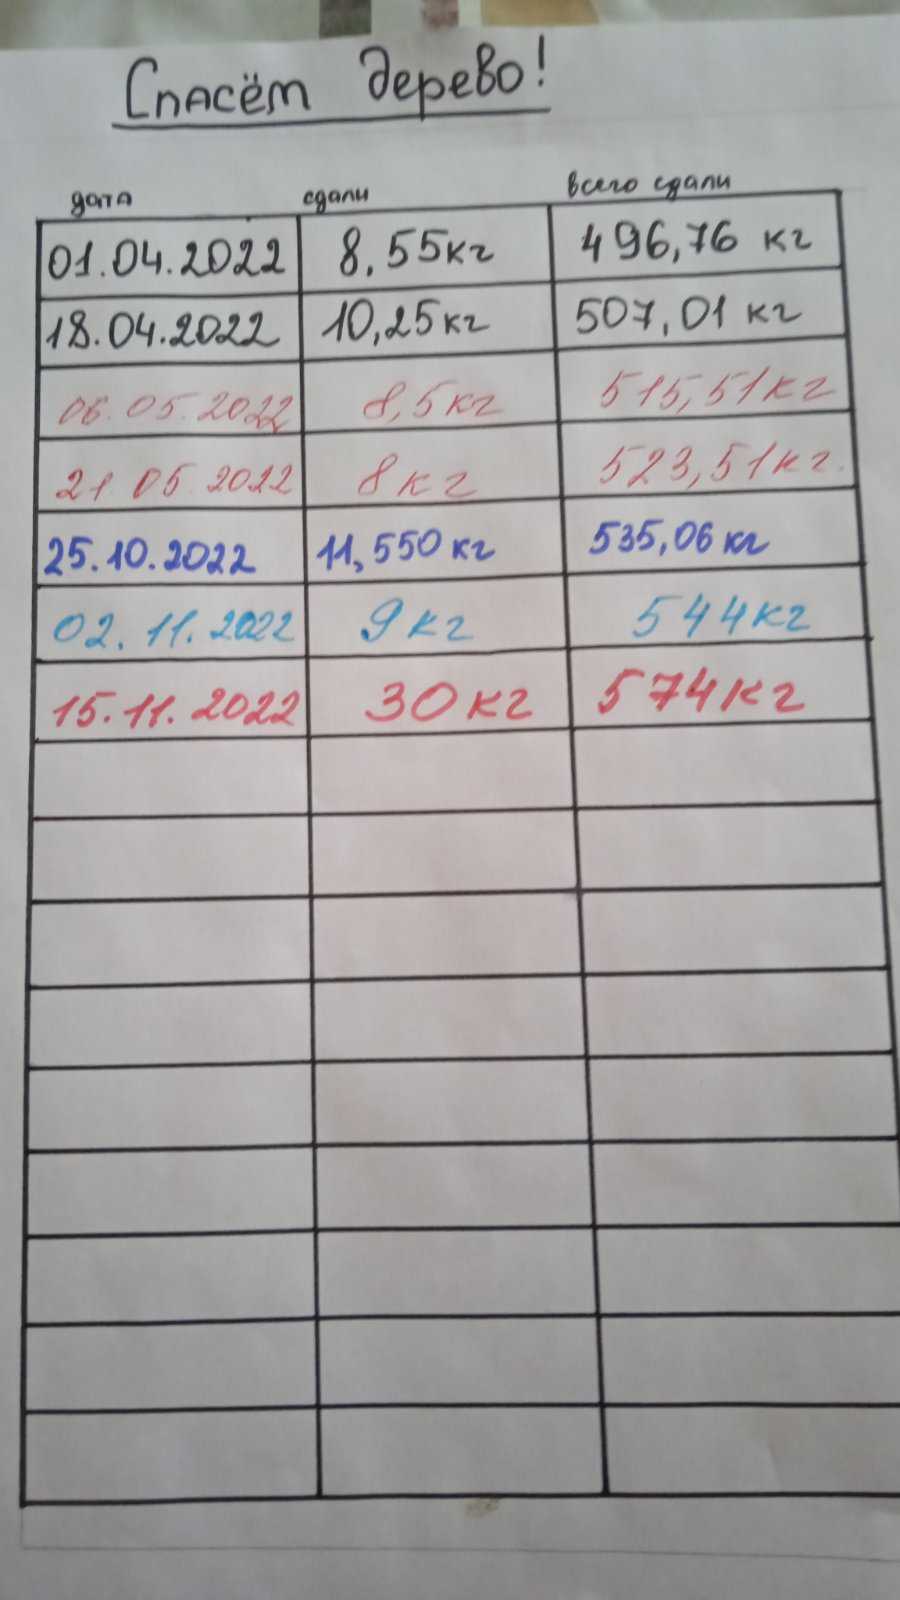 Спасём дерево!
дата сдали всего сдали
01.04.2022 8,55кг 496,76 кг
18.04.2022 10,25кг 507,01 кг
06.05.2022 8,5кг 515,51кг
21.05.2022 8кг 523,51кг.
25.10.2022 11,550кг 535,06кг
02.11.2022 9кг 544кг
15.11.2022 30кг 574кг